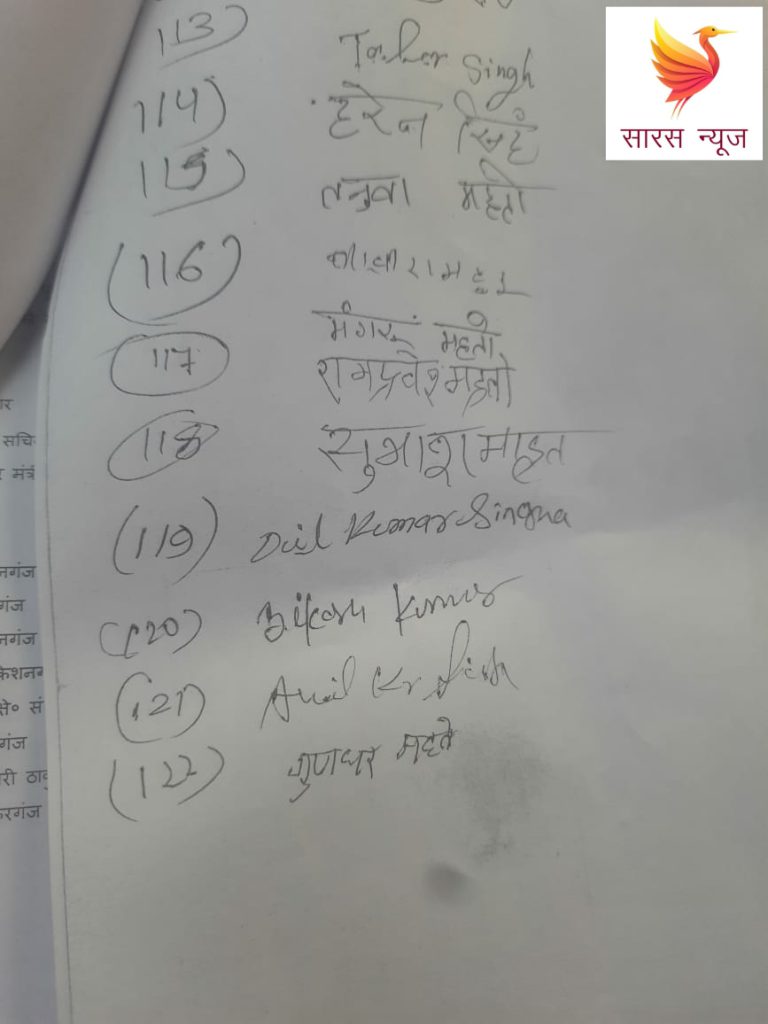 सारस न्यूज
113)
Taker Singh
114)
हरेन सिहं
115)
तनुवा महतो
(116)
117
मंगरू महतो
रामप्रवेश महतो
118
सुभाश माहत
(119)
Kumar Singha
(120)
Kumar
(121)
Anil Kr
(122)
गुणधर महतो
र
सचि
मंत्र
नगंज
गंज
नगंज
केशनग
से० सं
गंज
री ठाकु
करगंज